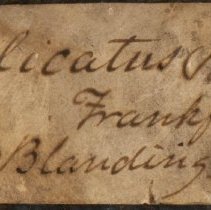 licatus
Frankf
Blanding